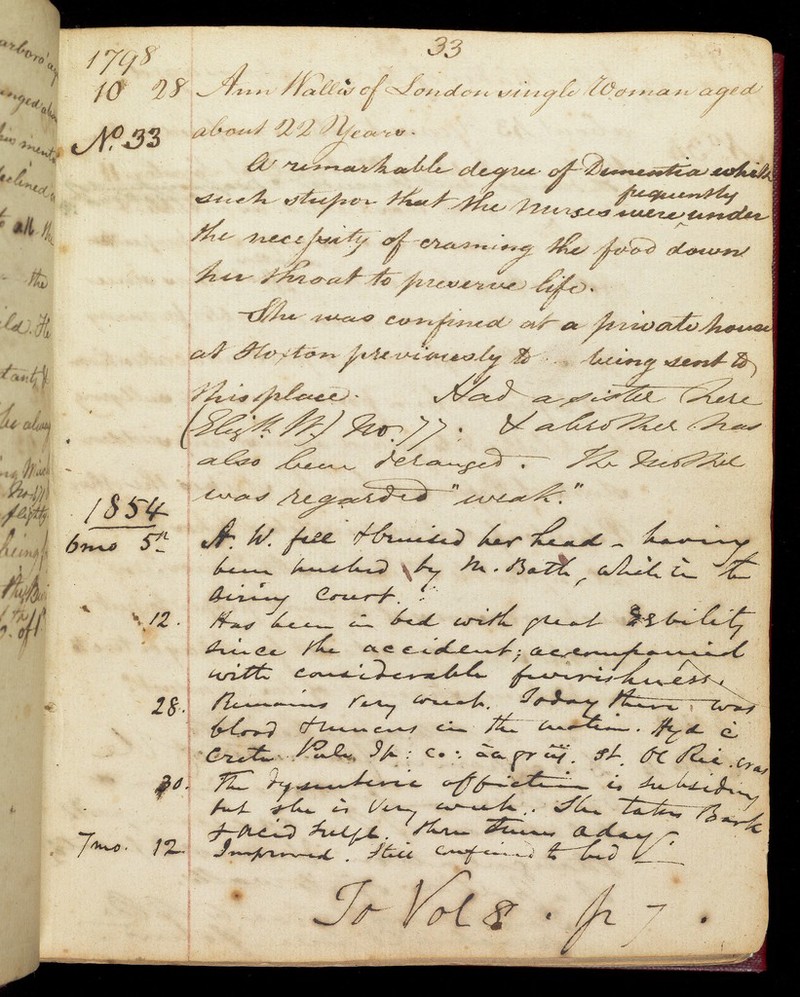 33
1798
10 28 Ann Wallis of London single Woman aged
No. 33 about 22 Years.
A remarkable degree of Dementia while
such stupor that the nurses were frequently under
the necessity of craming the food down
her throat to preserve life.
She was confined at a private house
at Hoxton previously to being sent to
this place. Had a sister here
(Elizth. W.) No. 77. & a brother has
also been deranged. The Mother
was regarded "weak."
1854
6mo 5th A. W. fell & bruised her head - having
been pushed by M. Bath, while in the
airing court.
12. Has been in bed with great debility
since the accident; accompanied
with considerable feverishness.
28. Remains very weak. Today there was
blood & mucus in the motion. Hyd c
Creta Pulv. Ip: co: āā gr iij. st. Ol Ric. cras
30. The dysenteric affection is subsiding
but she is very weak. She takes Bark
& acid sulph. three times a day.
7mo. 12 Improved. Still confined to bed
To Vol 8. p 7.